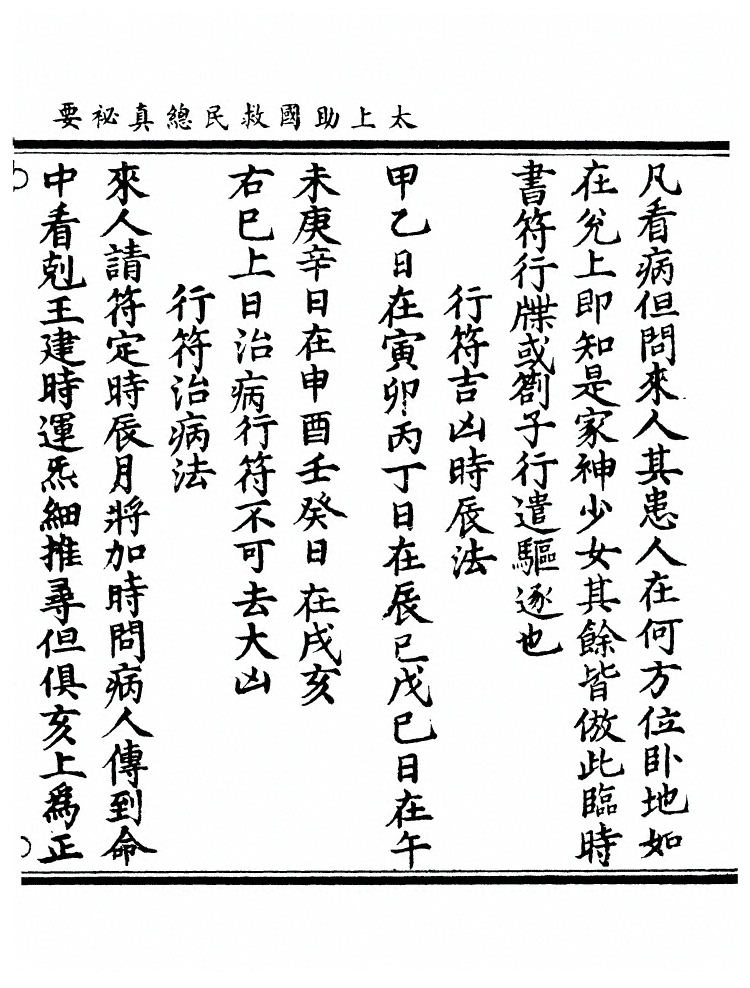 太上助國救民總真祕要
凡看病但問來人其患人在何方位卧地如
在兊上即知是家神少女其餘皆倣此臨時
書符行牒或劄子行遣驅逐也
行符吉凶時辰法
甲乙日在寅卯丙丁日在辰巳戊巳日在午
未庚辛日在申酉壬癸日在戌亥
右巳上日治病行符不可去大凶
行符治病法
來人請符定時辰月將加時問病人傳到命
中看剋王建時運炁細推尋但俱亥上爲正